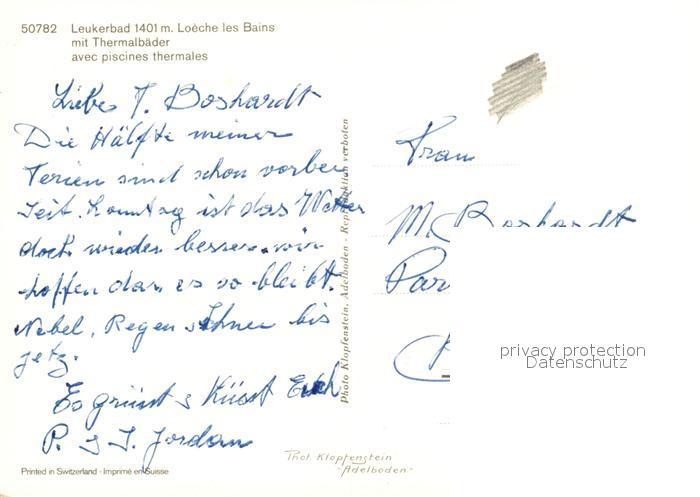 50782 Leukerbad 1401 m. Loèche les Bains
mit Thermalbäder
avec piscines thermales
Liebe F. Boshardt
Die Hälfte meiner
Ferien sind schon vorbei
Seit Sonntag ist das Wetter
doch wieder besser. wir
hoffen dass es so bleibt.
Nebel, Regen, Schnee bis
jetz.
Es grüsst & Küsst Euch
P. & J. Jordan
Photo Klopfenstein, Adelboden - Reproduktion verboten
Frau
M. Boshardt
Par
privacy protection
Datenschutz
Phot. Klopfenstein
-Adelboden-
Printed in Switzerland - Imprimé en Suisse